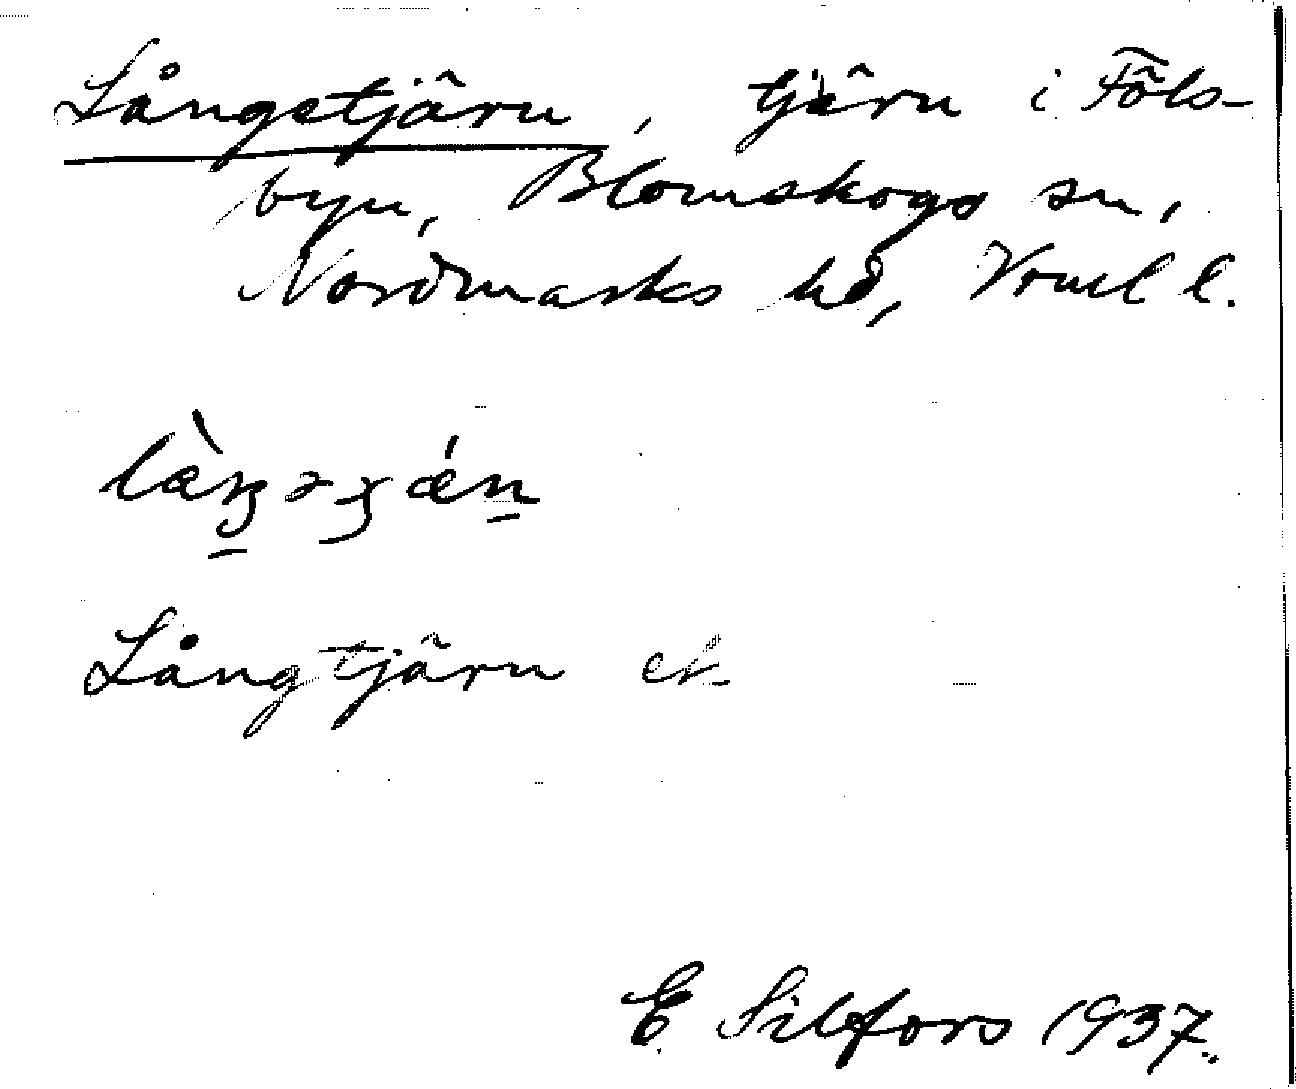 Långetjärn, tjärn i Föls-
byn, Blomskogs sn,
Nordmarks hd, Vrml l.
Långtjärn ek.
E Silfors 1937.